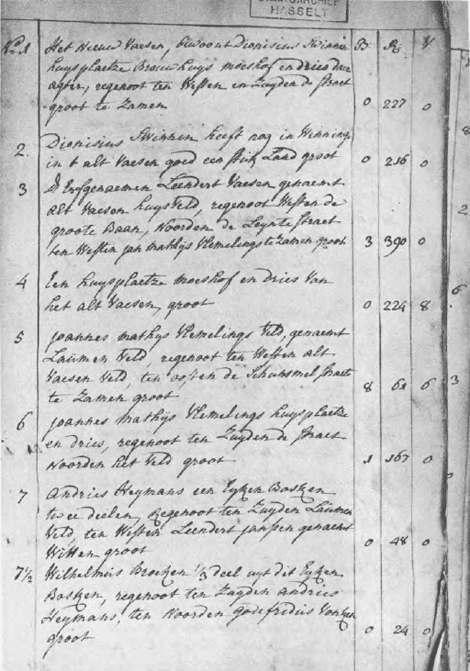 HASSELT
No. 1 Het Nieuw Vaesen, bewoont Dionisius Swinnen B R V
huysplaetze Brouwhuys moeshof en dries daer
agter, regenoot ten Westen en Zuyden de straet
groot te Zamen 0 227 0
2 Dionisius Swinnen heeft nog in Winninge
in t alt Vaesen goed een stuk Land groot 0 216 0
3 D Erfgenaemen Leendert Vaesen genaemt
alt Vaesen huys Veld, regenoot Westen de
groote Baan, Noorden de Leynte straet
ten Westen jan mathijs Vlemelings te Zamen groot 3 390 0
4 Een huysplaetze moeshof en dries Van
het alt Vaesen, groot 0 224 8
5 joannes mathijs Vlemelings Veld, genaemt
Laumen Veld regenoot ten Westen alt
Vaesen Veld, ten osten de straet
te Zamen groot 8 61 6
6 joannes mathijs Vlemelings huysplaetze
en dries, regenoot ten Zuyden de straet
Noorden het Veld groot 1 167 0
7 Andries Heymans een Eyken Bosken
twee deelen, Regenoot ten Zuyden Laumen
Veld, ten Westen Leendert jansen genaemt
Witten groot 0 48 0
7½ Wilhelmus Broeken 1/3 deel uyt dit Eyken
Bosken, regenoot ten Zuyden andries
Heymans, ten Noorden godefridus Vonken
groot 0 24 0